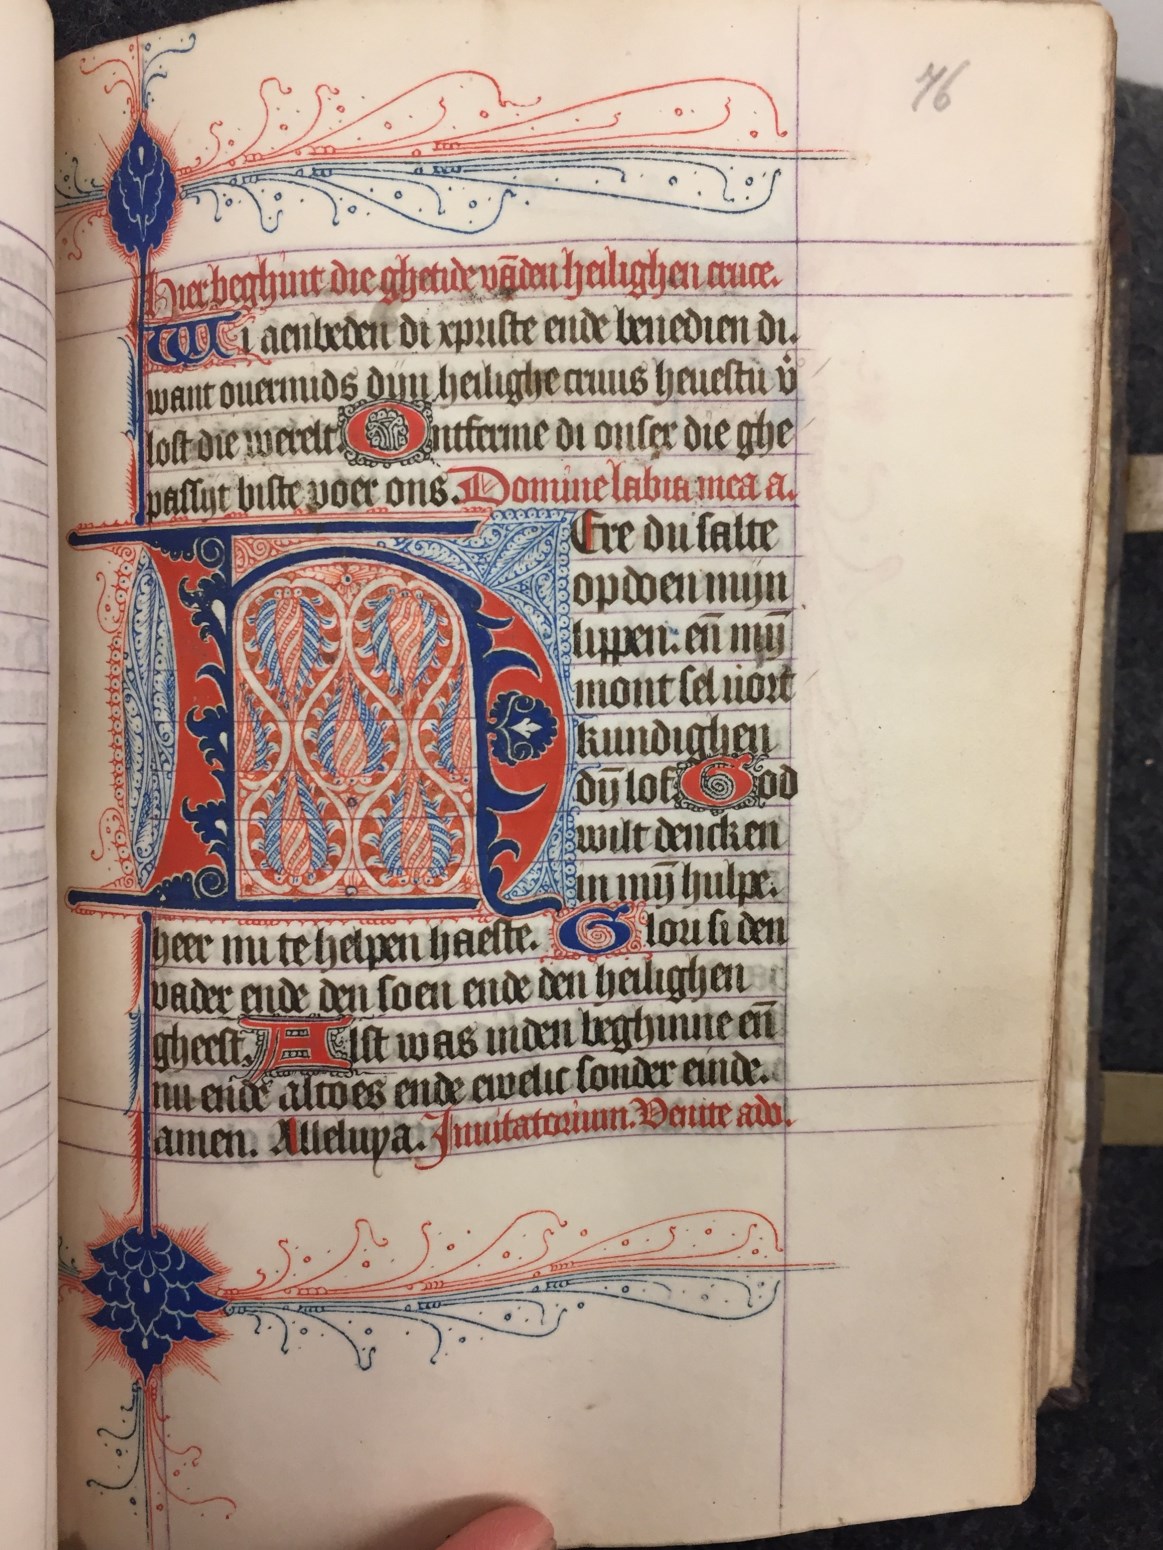 76
Hier beghint die ghetide vāden heilighen cruce.
Wi aenbeden di xpriste ende benedien di.
want ouermids dijn heilighe cruus heuestu v̾
lost die werelt. Ontferme di onser die ghe
passijt biste voer ons. Domine labia mea a.
HEre du salte
opdoen mijn
lippen. eñ mijn̄
mont sel uort
kundighen
dijn̄ lof. God
wilt dencken
in mijn̄ hulpe.
heer mi te helpen haeste. Glori si den
vader ende den soen ende den heilighen
gheest. Alst was inden beghinne eñ
nu ende altoes ende ewelic sonder einde.
amen. Alleluya. Inuitatorium. Venite ado.